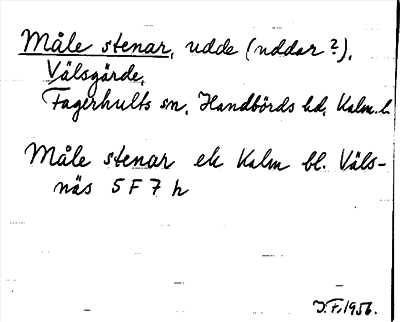 Måle stenar, udde (uddar?),
Välsgärde,
Fagerhults sn, Handbörds hd, Kalm. l.
Måle stenar ek Kalm bl. Väls-
näs 5 F 7 h
J.F. 1956.